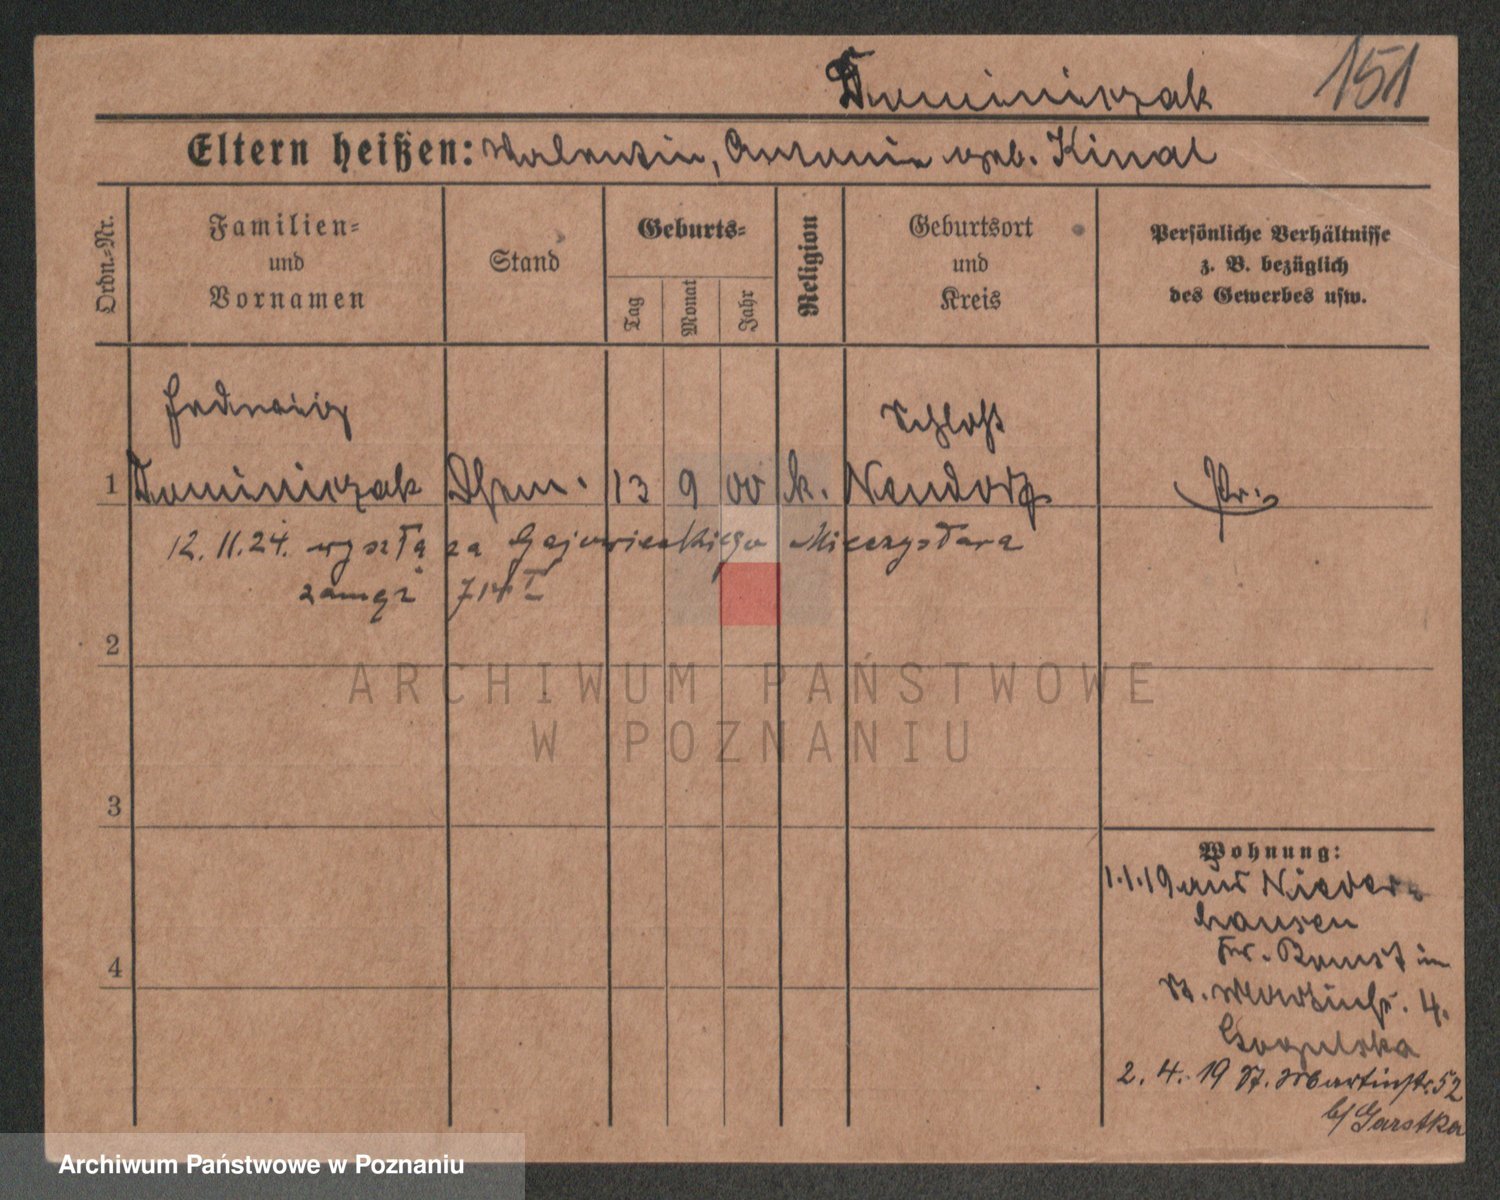 Dominiczak 151
Eltern heißen: Valentin, Antonie geb. Kinal
Ordn.-Nr.
Familien-
und
Vornamen
Stand
Geburts-
Tag
Monat
Jahr
Religion
Geburtsort
und
Kreis
Persönliche Verhältnisse
z. B. bezüglich
des Gewerbes usw.
Hedwig
Schloß
1 Dominiczak 13 9 00 k. Neudorf Pr.
12. 11. 24. wyszła za Gajowieckiego Mieczysława
zamęż 714 I
2
3
4
Wohnung:
1.1.19 aus Nieder
hausen
St. Martinstr. 4.
2. 4. 19 St. Martinstr. 52
b/ Garstka
ARCHIWUM PAŃSTWOWE
W POZNANIU
Archiwum Państwowe w Poznaniu